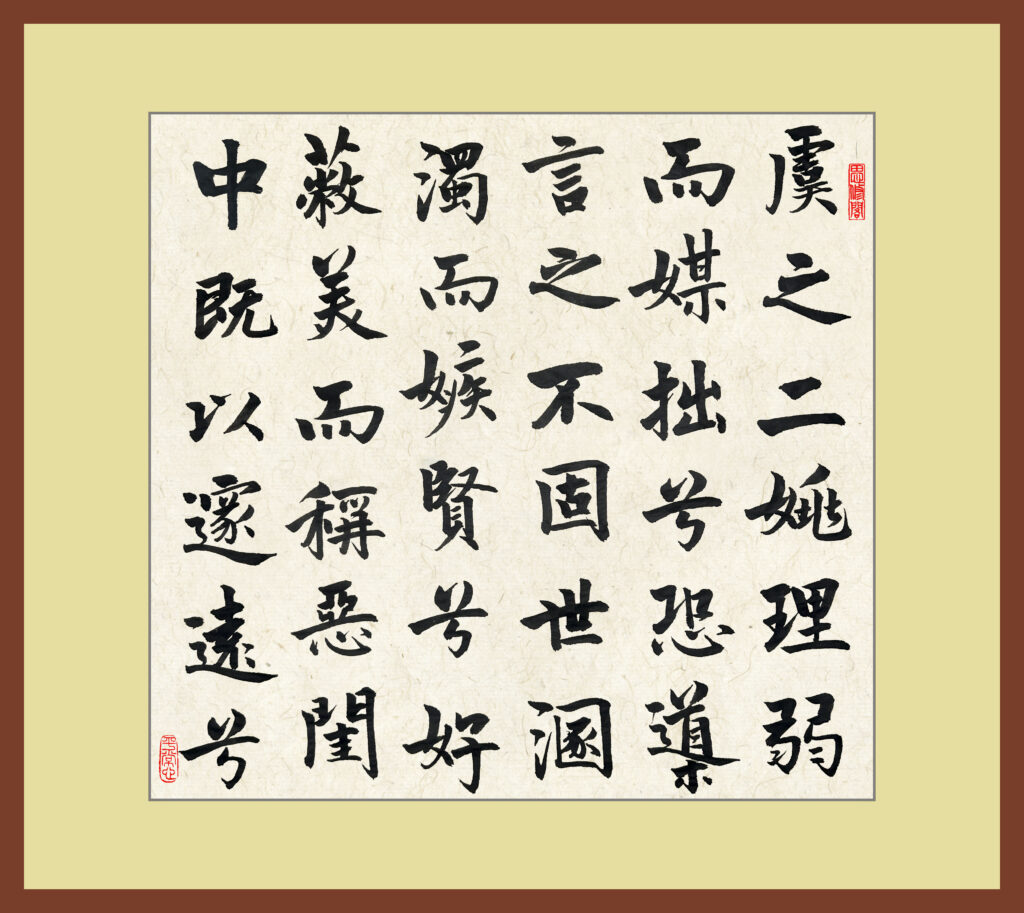 虞之二姚理弱
而媒拙兮恐導
言之不固世溷
濁而嫉賢兮好
蔽美而稱惡閨
中既以邃遠兮